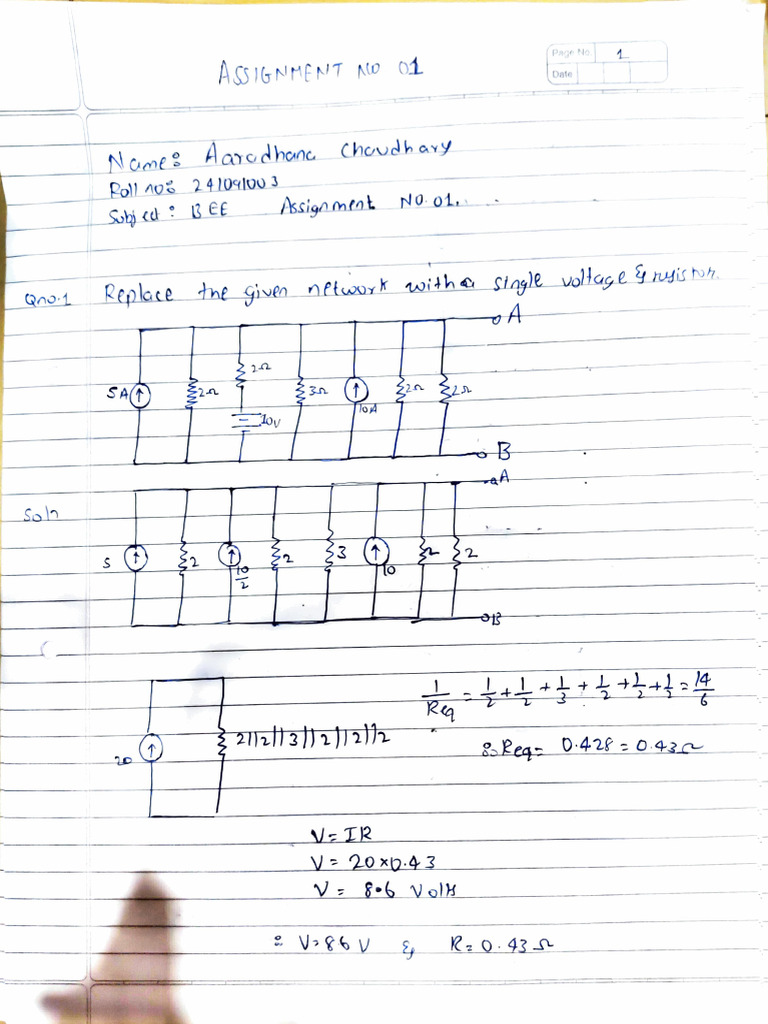 ASSIGNMENT NO 01
Page No. 1
Date
Name: Aaradhana Choudhary
Roll no: 241091003
Subject: BEE Assignment NO.01.
Qno.1 Replace the given network with a single voltage & resistor.
A
5A 2Ω 2Ω 10V 3Ω 10A 2Ω 2Ω
B
Soln
A
5 2 10/2 2 3 10 2 2
B
20 2||2||3||2||2||2
1/Req = 1/2 + 1/2 + 1/3 + 1/2 + 1/2 + 1/2 = 14/6
∴ Req = 0.428 = 0.43Ω
V = IR
V = 20×0.43
V = 8.6 Volts
∴ V=86 V & R= 0.43Ω